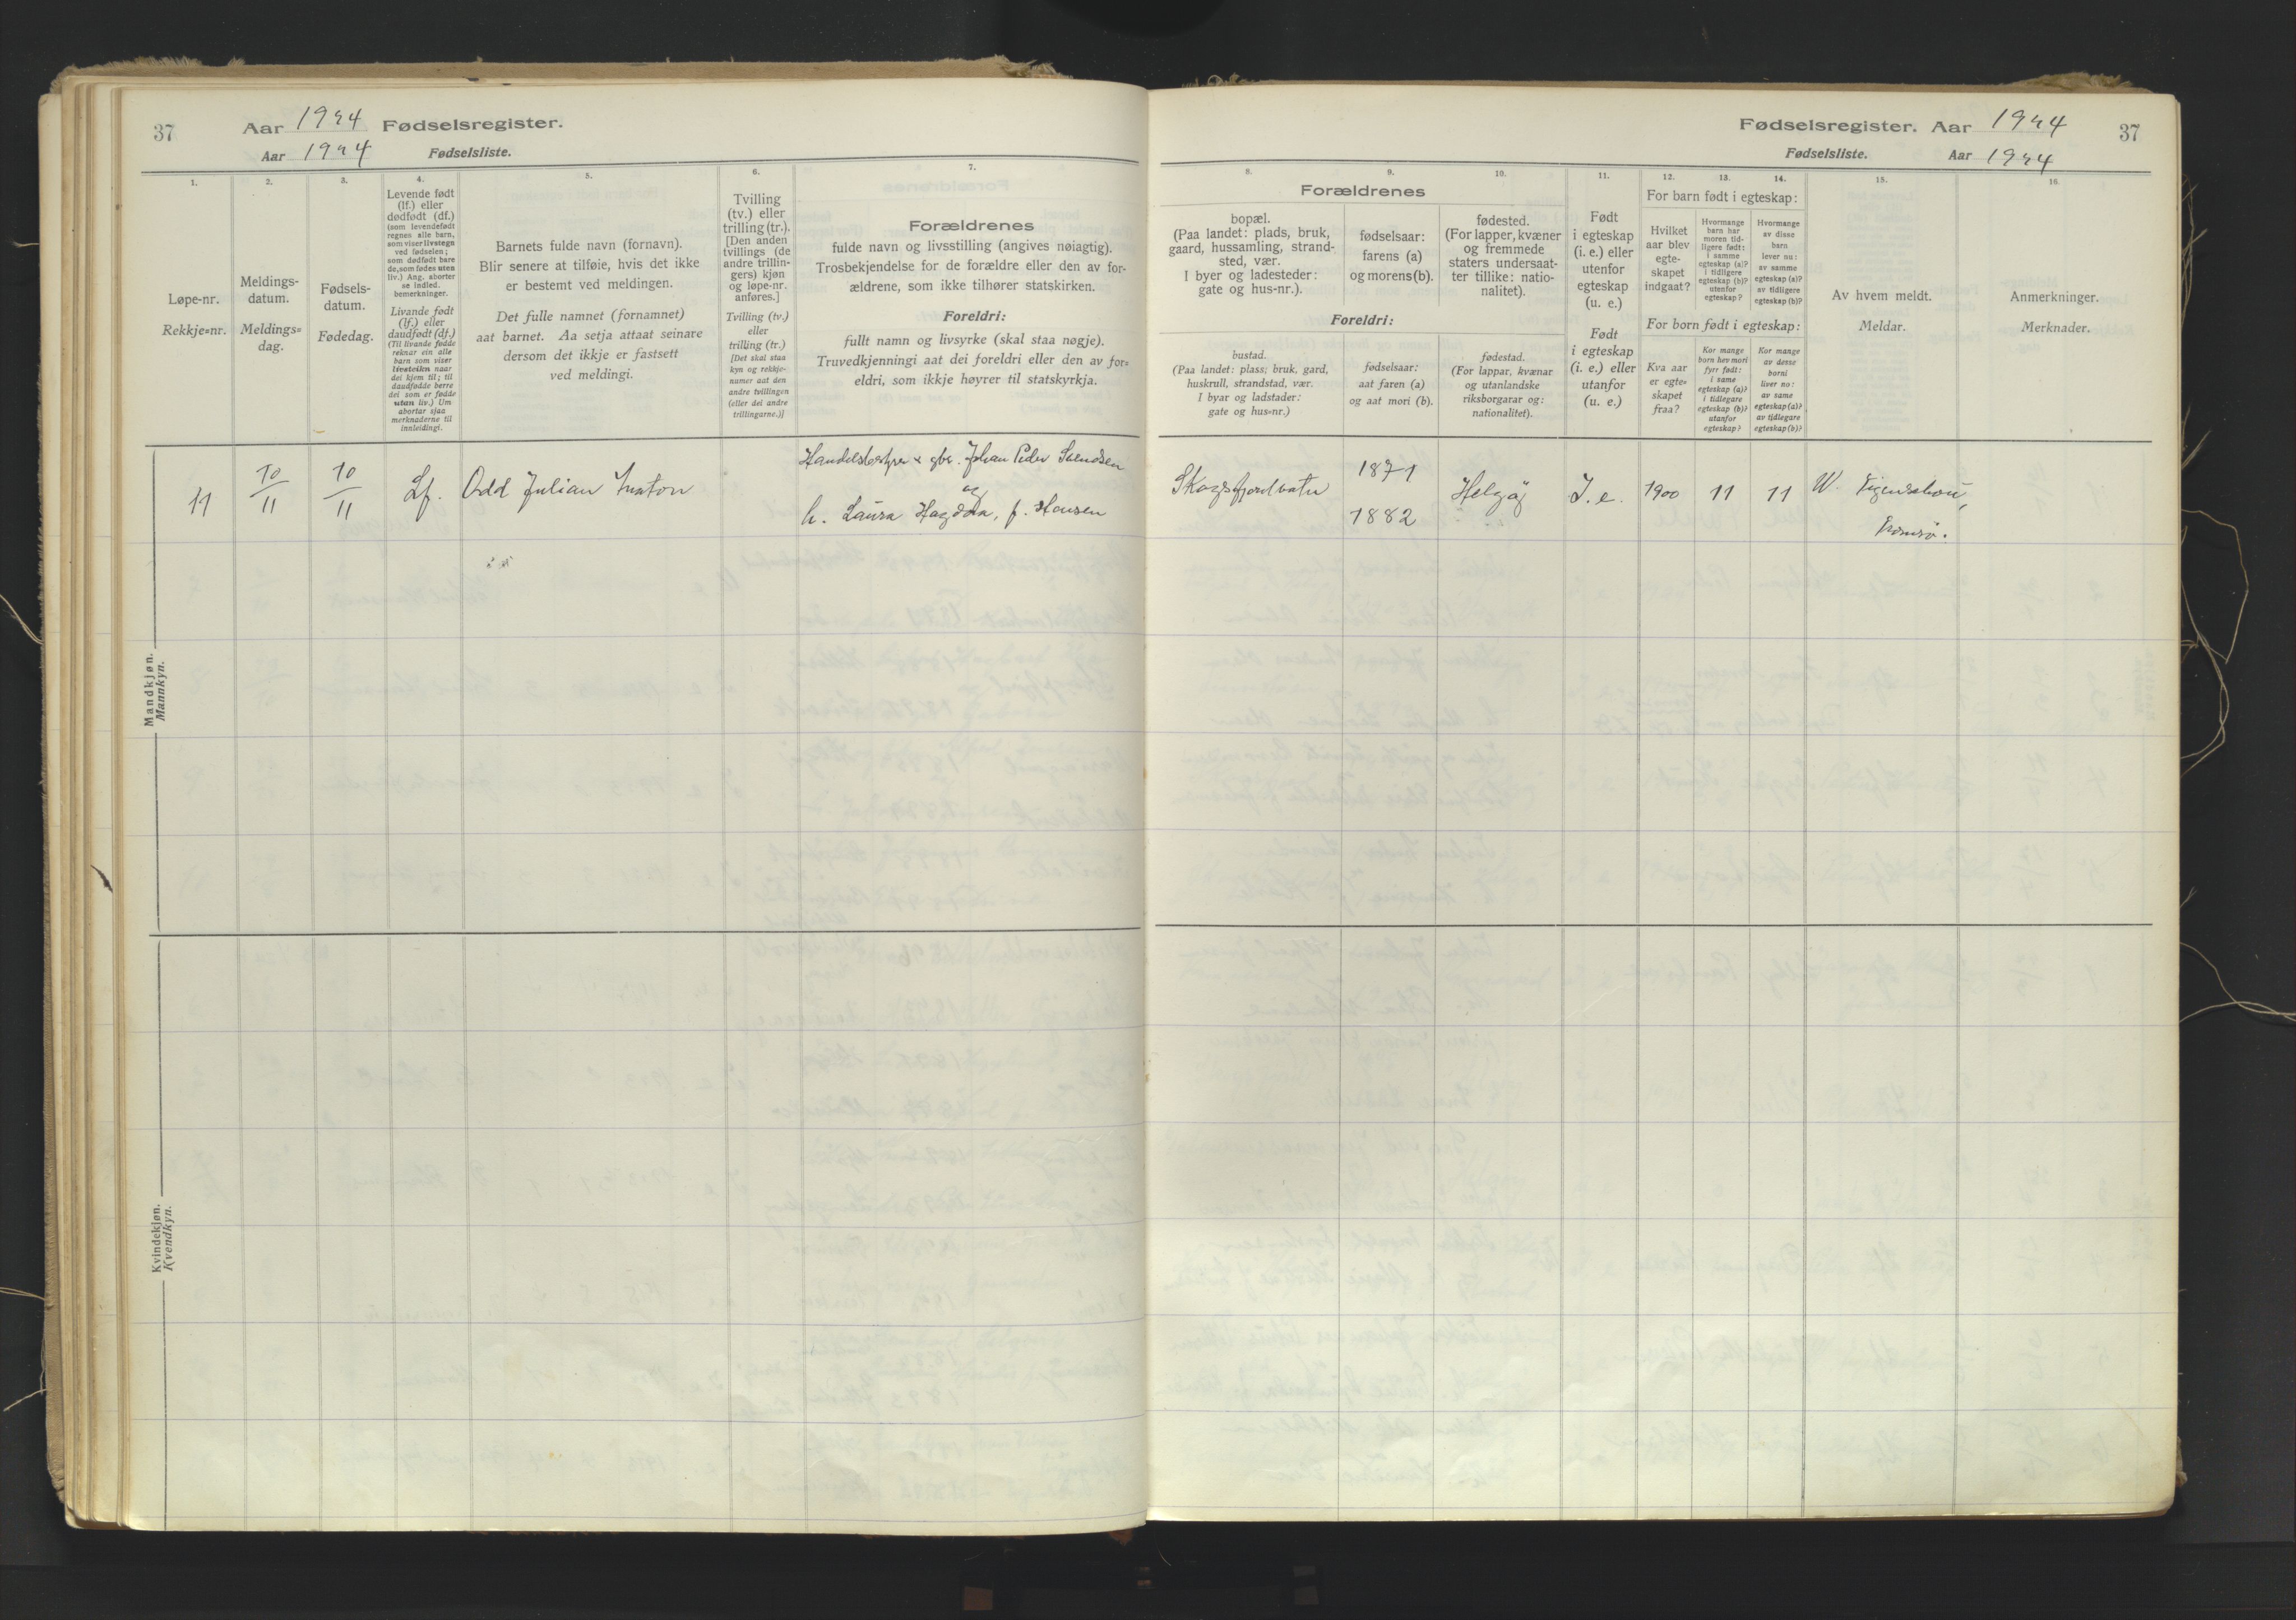 37
Aar 1924 Fødselsregister.
Aar 1924 Fødselsliste.
1.
2.
3.
4.
5.
6.
7.
Løpe-nr.
Rekkje=nr.
Meldings-
datum.
Meldings=
dag.
Fødsels-
datum.
Fødedag.
Levende født
(lf.) eller
dødfødt (df.)
(som levendefødt
regnes alle barn,
som viser livstegn
ved fødselen;
som dødfødt bare
de, som fødes uten
liv.) Ang. aborter
se indled.
bemerkninger.
Livande født
(lf.) eller
daudfødt (df.)
(Til livande fødde
reknar ein alle
barn som viser
livsteikn naar
dei kjem til; til
daudfødde berre
dei som er fødde
utan liv.) Um
abortar sjaa
merknaderne til
innleidingi.
Barnets fulde navn (fornavn).
Blir senere at tilføie, hvis det ikke
er bestemt ved meldingen.
Det fulle namnet (fornamnet)
aat barnet. Aa setja attaat seinare
dersom det ikkje er fastsett
ved meldingi.
Tvilling
(tv.) eller
trilling (tr.).
[Den anden
tvillings (de
andre trillin-
gers) kjøn
og løpe-nr.
anføres.]
Tvilling (tv.)
eller
trilling (tr.)
[Det skal staa
kyn og rekkje-
numer aat den
andre tvillingen
(eller dei andre
trillingarne.)]
Forældrenes
fulde navn og livsstilling (angives nøiagtig).
Trosbekjendelse for de forældre eller den av for-
ældrene, som ikke tilhører statskirken.
Foreldri:
fullt namn og livsyrke (skal staa nøgje).
Truvedkjenningi aat dei foreldri eller den av for=
eldri, som ikkje høyrer til statskyrkja.
Mandkjøn.
Mannkyn.
11
10/11
10/11
Lf.
Odd Julian
gbr. Johan Peder Svendsen
og
h. Laura Hagdda, f. Hansen
Kvindekjøn.
Kvendkyn.
Fødselsregister. Aar 1924
37
Fødselsliste. Aar 1924
8.
9.
10.
11.
12.
13.
14.
15.
16.
Forældrenes
bopæl.
(Paa landet: plads, bruk,
gaard, hussamling, strand-
sted, vær.
I byer og ladesteder:
gate og hus-nr.).
fødselsaar:
farens (a)
og morens (b).
fødested.
(For lapper, kvæner
og fremmede
staters undersaat-
ter tillike: natio-
nalitet).
Foreldri:
bustad.
(Paa landet: plass; bruk, gard,
huskrull, strandstad, vær.
I byar og ladstader:
gate og hus=nr.)
fødselsaar:
aat faren (a)
og aat mori (b).
fødestad.
(For lappar, kvænar
og utanlandske
riksborgarar og:
nationalitet).
Født
i egteskap
(i. e.) eller
utenfor
egteskap
(u. e.)
Født
i egteskap
(i. e.) eller
utanfor
(u. e.)
For barn født i egteskap:
Hvilket
aar blev
egte-
skapet
indgaat?
Hvormange
barn har
moren tid-
ligere født:
i samme
egteskap (a)?
i tidligere
egteskap (b)?
utenfor
egteskap?
Hvormange
av disse
barn
lever nu:
av samme
egteskap (a)?
av tidligere
egteskap (b)?
For born født i egteskap:
Kva aar
er egte=
skapet
fraa?
Kor mange
born hev mori
fyrr født:
i same
egteskap (a)?
i tidlegare
egteskap (b)?
utanfor
egteskap?
Kor mange
av desse
borni
liver no:
av same
egteskap (a)?
av tidlegare
egteskap (b)?
Av hvem meldt.
Meldar.
Anmerkninger.
Merknader.
Skogsfjordvatn
1871
1882
Helgøy
I. e.
1900
11
11
W.
Tromsø.